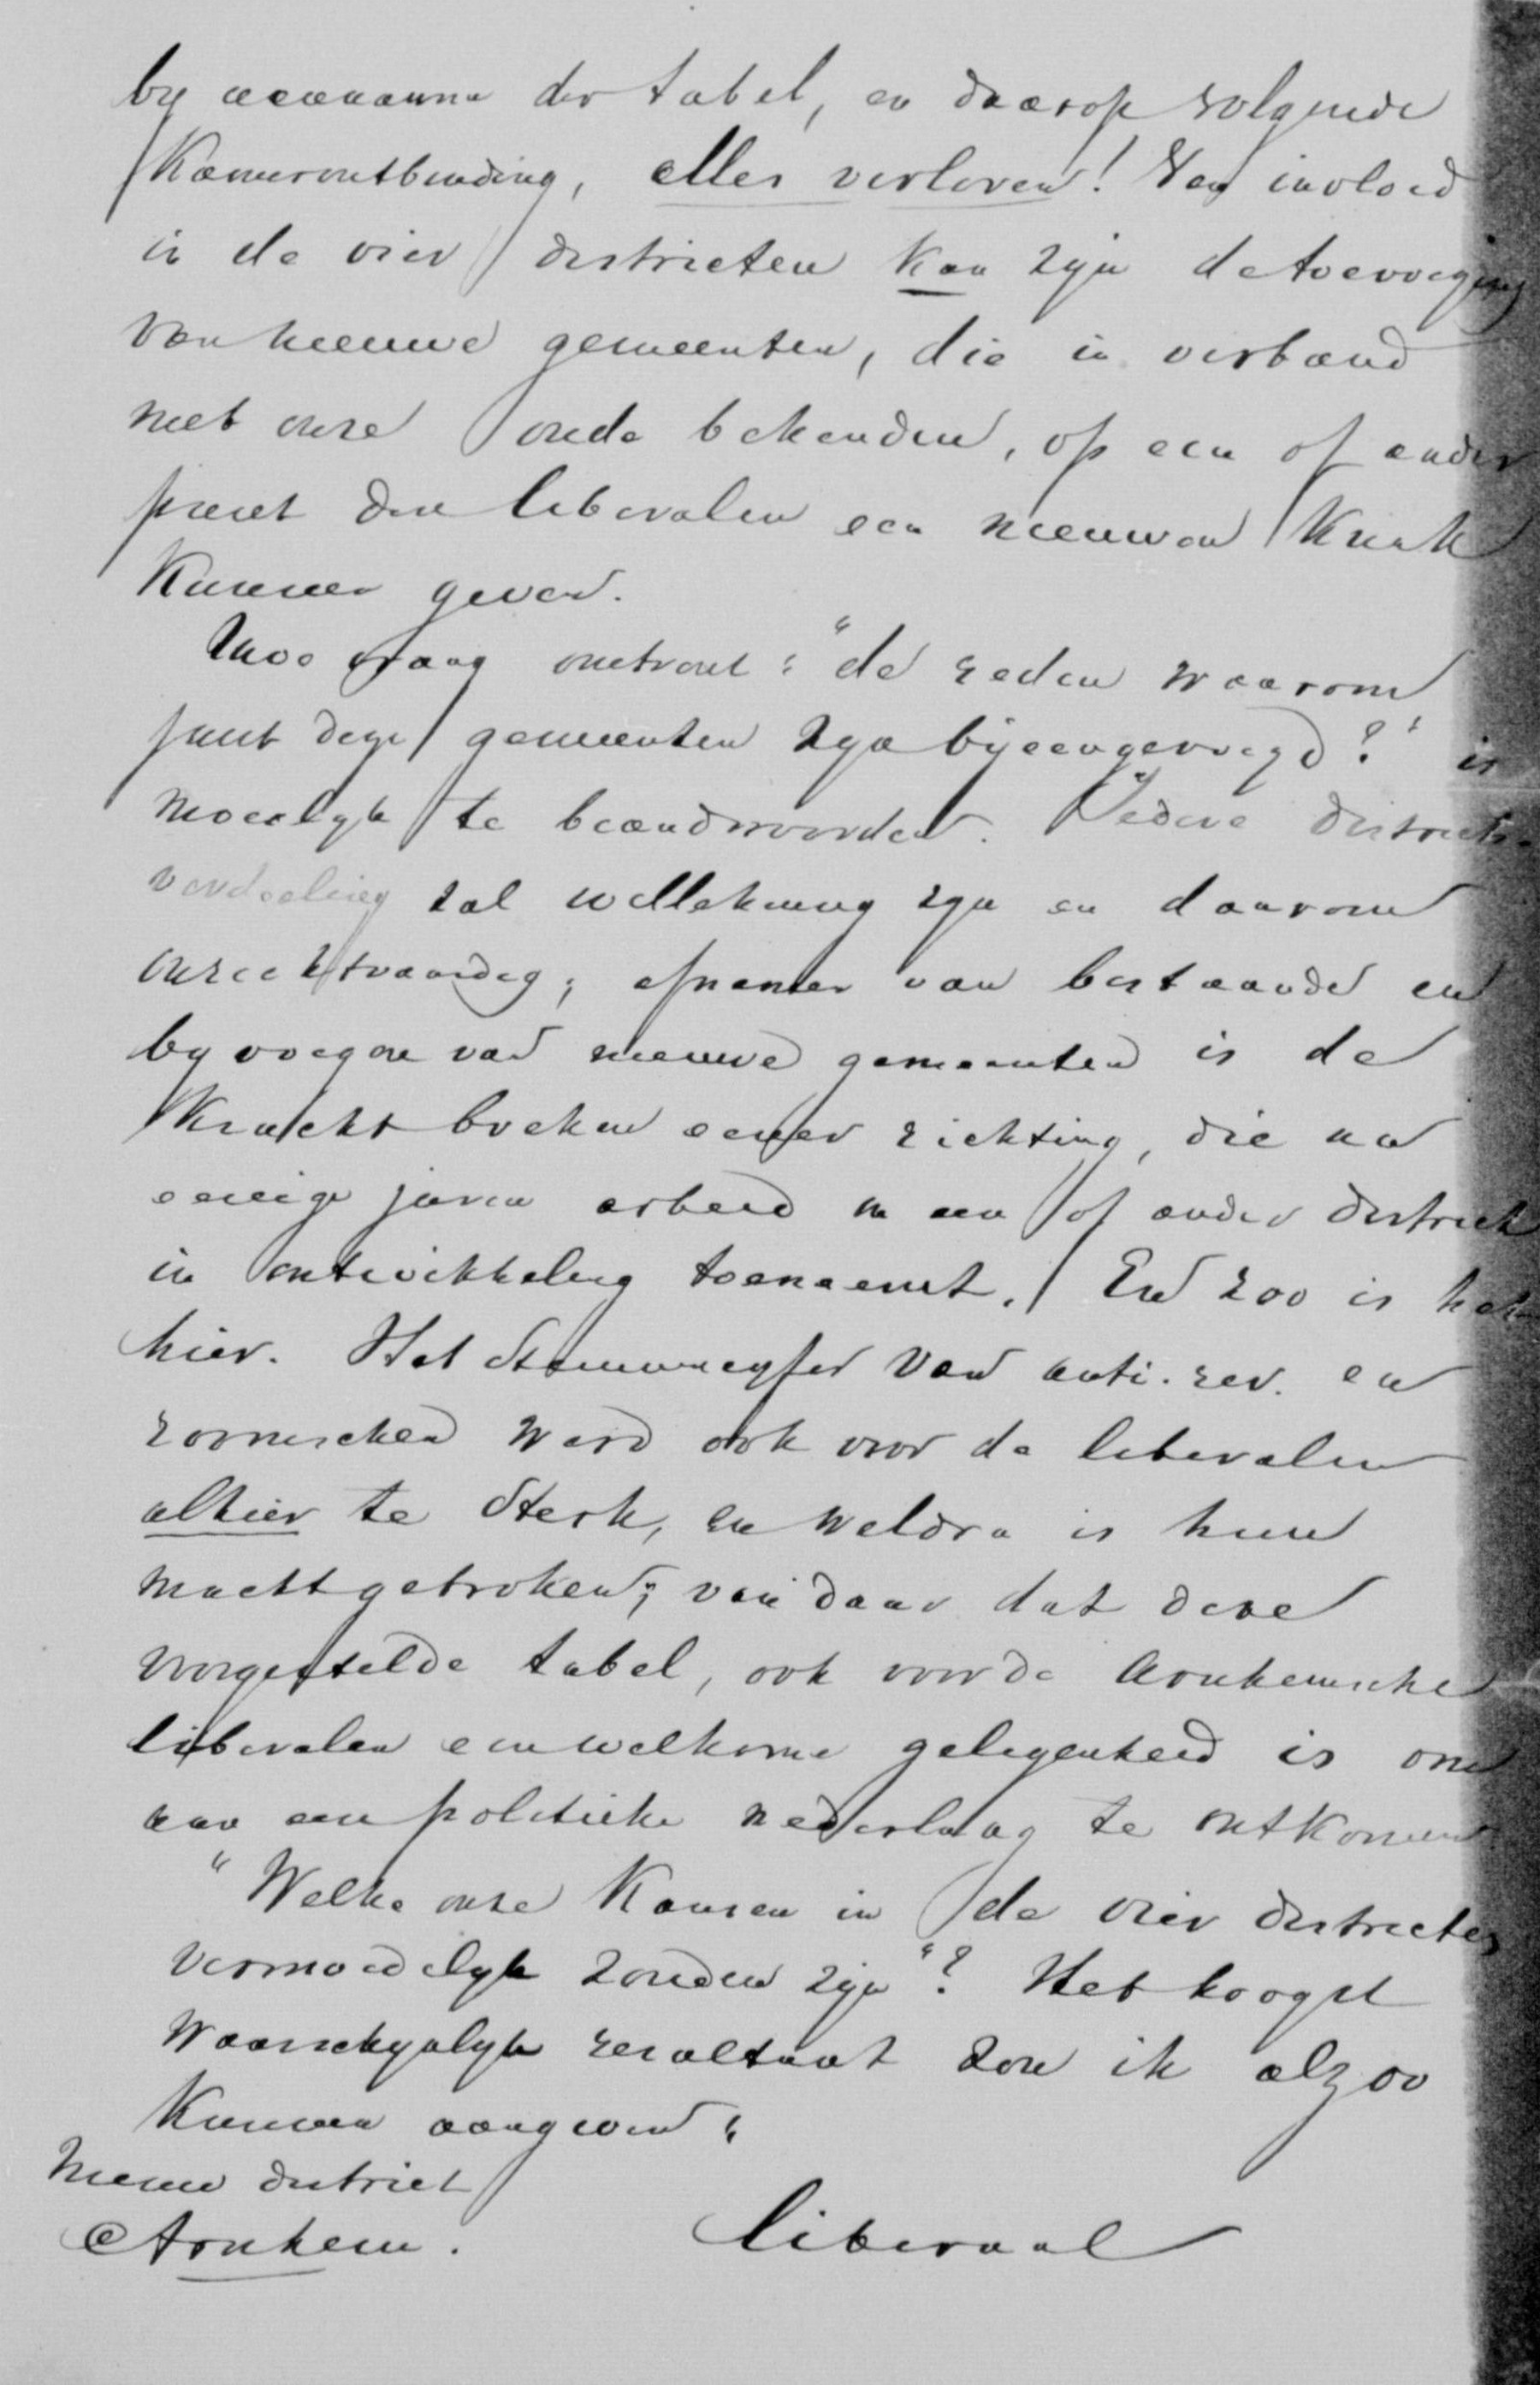 by aanname der tabel, en daarop volgende
Kamerontbinding, alles verloren! Van invloed
in de vier districten kan zijn de toevoeging
van nieuwe gemeenten, die in verband
met onze oude bekenden, op een of ander
punt den liberalen een nieuwen knak
kunnen geven.
Uwe vraag omtrent: "de reden waarom
juist deze gemeenten zijn bijeengevoegd?" is
moeielyk te beandwoorden. Iedere districts-
verdeeling zal willekeurig zyn en daarom
onrechtvaardig; afnemen van bestaande en
byvoegen van nieuwe gemeenten is de
kracht breken eener richting, die na
eenige jaren arbeid in een of ander district
in ontwikkeling toeneemt. En zoo is het
hier. Het stemmencyfer van anti-rev. en
roomschen werd ook voor de liberalen
alhier te sterk, en weldra is hun
macht gebroken; van daar dat deze
voorgestelde tabel, ook voor de Arnhemsche
liberalen een welkome gelegenheid is om
aan een politieke nederlaag te ontkomen.
"Welke onze kansen in de vier districten
vermoedelyk zouden zijn"? Het hoogst
waarschynlyk resultaat zou ik alzoo
kunnen aangeven:
Nieuw district
Arnhem. Liberaal